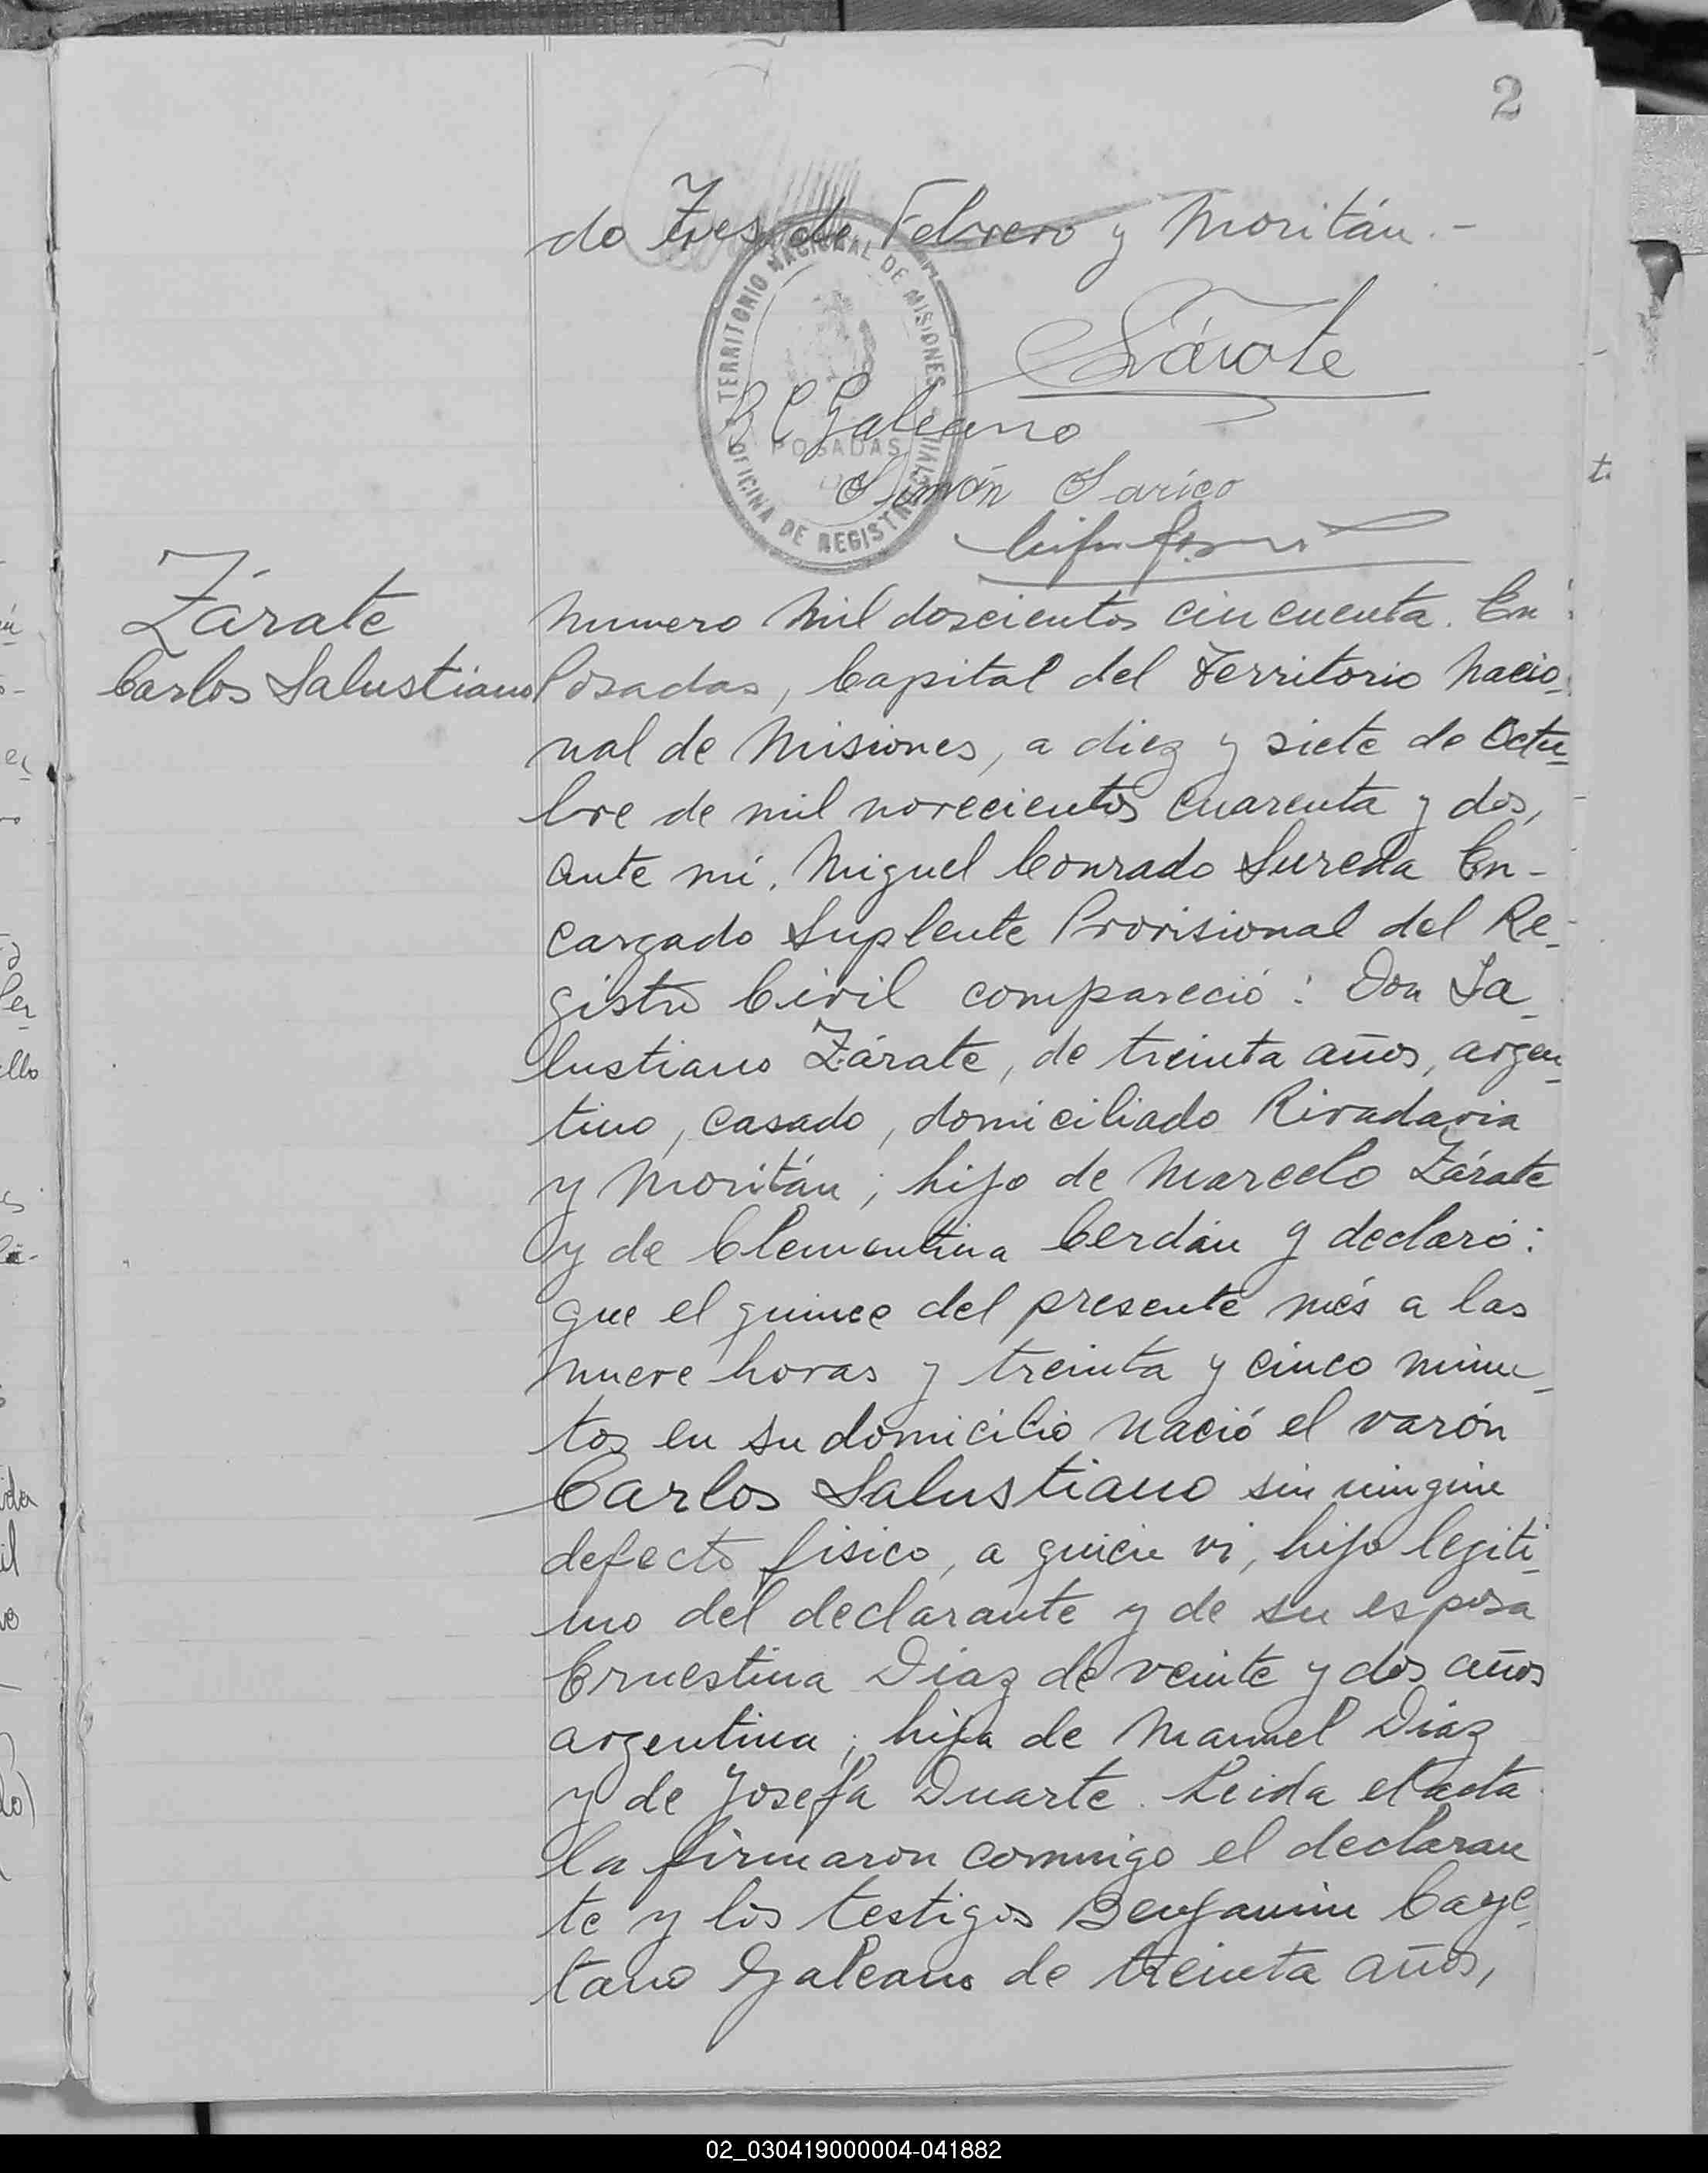 2
do Tres de Febrero y Moritán.-
TERRITORIO NACIONAL DE MISIONES
POSADAS
OFICINA DE REGISTRO CIVIL
Zárate
B C Galeano
Simón Sarico
Zárate
Carlos Salustiano
Numero mil doscientos cincuenta. En
Posadas, Capital del Territorio Nacio-
nal de Misiones, a diez y siete de Octu-
bre de mil novecientos cuarenta y dos,
ante mi, Miguel Conrado Sureda En-
cargado Suplente Provisional del Re-
gistro Civil compareció: Don Sa-
lustiano Zárate, de treinta años, argen-
tino, casado, domiciliado Rivadavia
y Moritán; hijo de Marcelo Zárate
y de Clementina Cerdán y declaró:
que el quince del presente més a las
nueve horas y treinta y cinco minu-
tos en su domicilio nació el varón
Carlos Salustiano sin ningun
defecto fisico, a quien vi, hijo legiti-
mo del declarante y de su esposa
Ernestina Diaz de veinte y dos años
argentina; hija de Manuel Diaz
y de Josefa Duarte. Leida el acta
la firmaron conmigo el declaran
te y los testigos Benjamin Caye-
tano Galeano de treinta años,
02_030419000004-041882